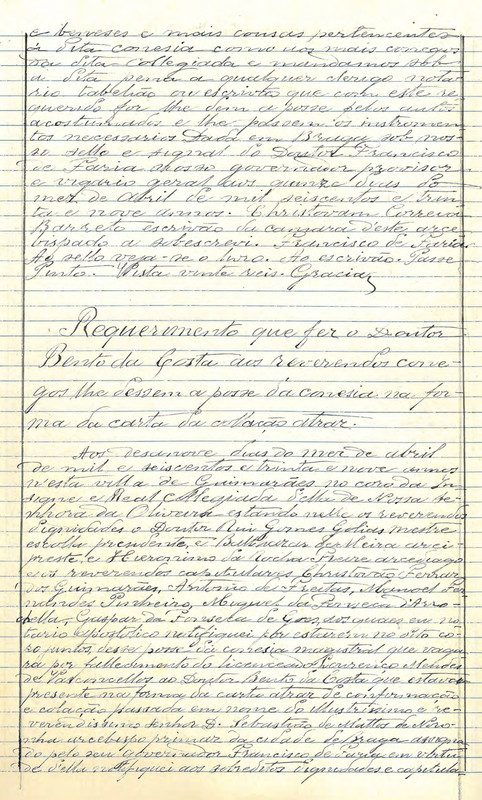 e benesses e mais cousas pertencentes
á dita conesia como aos mais conegos
na dita Collegiada e mandamos sob
a dita pena a qualquer clerigo nota-
rio tabelião ou escrivão que com este re-
querido for lhe dem a posse pelos autos
acostumados e lhe passem os instromen-
tos necessarios Dada em Braga sob nos-
so sello e signal do Doutor Francisco
de Faria nosso governador provisor
e vigario geral aos quinze dias do
mez de Abril de mil seiscentos e trin-
ta e nove annos. Christovam Correia
Barreto escrivão da camara deste arce-
bispado a sobescrevi. Francisco de Faria.
Ao sello veja-se o livro. Ao escrivão. Passe
Pinto. Vista vinte reis. Gracia
Requerimento que fez o Doutor
Bento da Costa aos reverendos cone-
gos lhe dessem a posse da conesia na for-
ma da carta da collação atraz.
Aos desanove dias do mez de abril
de mil e seiscentos e trinta e nove annos
n'esta villa de Guimarães no coro da In-
signe e Real Collegiada d'ella de Nossa Se-
nhora da Oliveira estando nelle os reverendos
dignidades o Doutor Rui Gomes Golias mestre
escolla presidente, e Balthazar de Meira arci-
preste, e Hieronimo da Rocha Freire arcediago
e os reverendos capitulares, Christovão Ferraz,
dos Guimarães, Antonio de Freitas, Manoel Fer-
nandes Pinheiro, Miguel da Fonseca d'Arro-
chella, Gaspar da Fonseca de Goes, dos quaes eu no-
tario apostolico notifiquei por estarem no dito co-
ro juntos, dessem posse da conesia magistral que vagou
por fallecimento do licenceado Lourenço Mendes
de Vasconcellos ao Doutor Bento da Costa que estava
presente na forma da carta atraz de confirmação
e colação passada em nome do Illustrissimo e re-
verendissimo senhor D. Sebastião de Mattos de Noro-
nha arcebispo primaz da cidade de Braga assigna-
do pelo seu governador Francisco de Faria em virtu-
de d'ella notifiquei aos sobreditos dignidades e capitula-